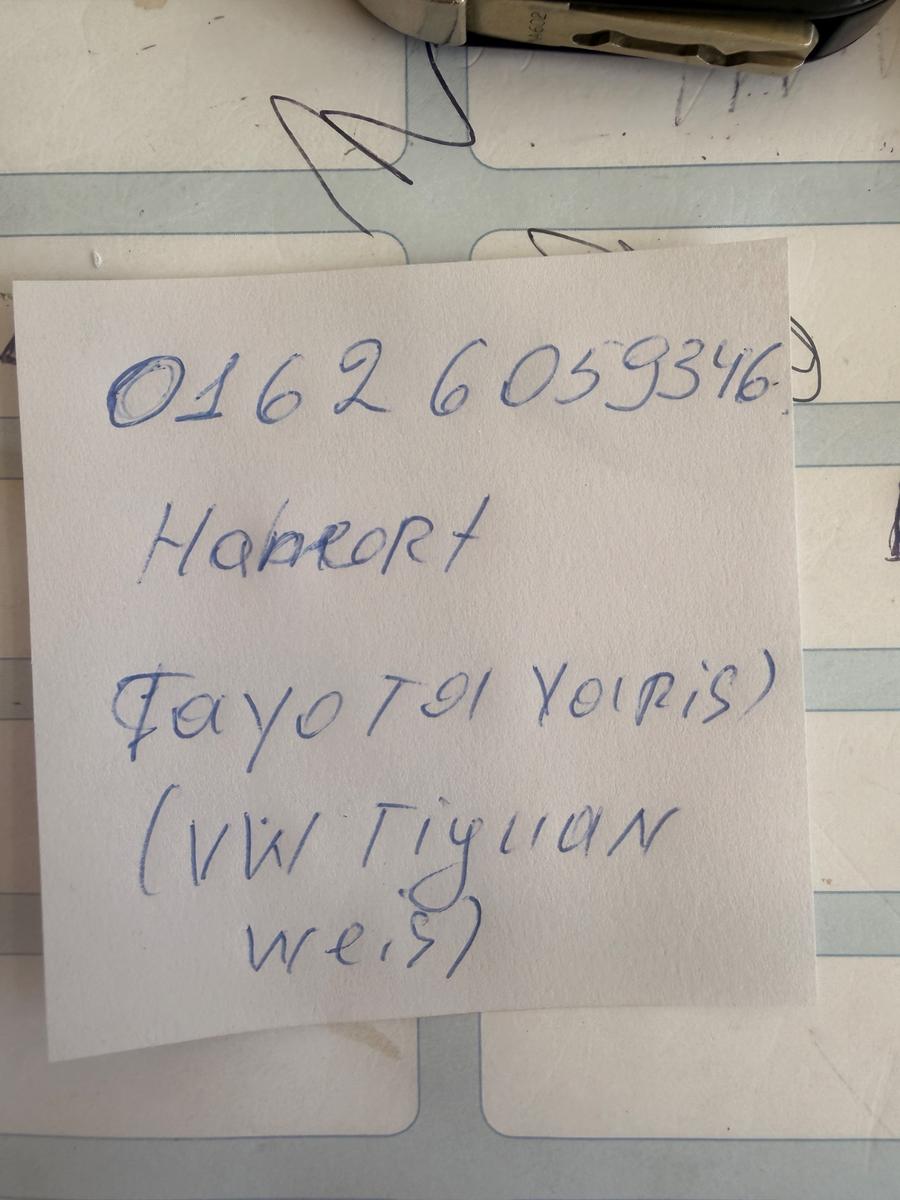 A602
0162 6 059346
Habekort
Tayota Yaris)
(VW Tiguan
weis)